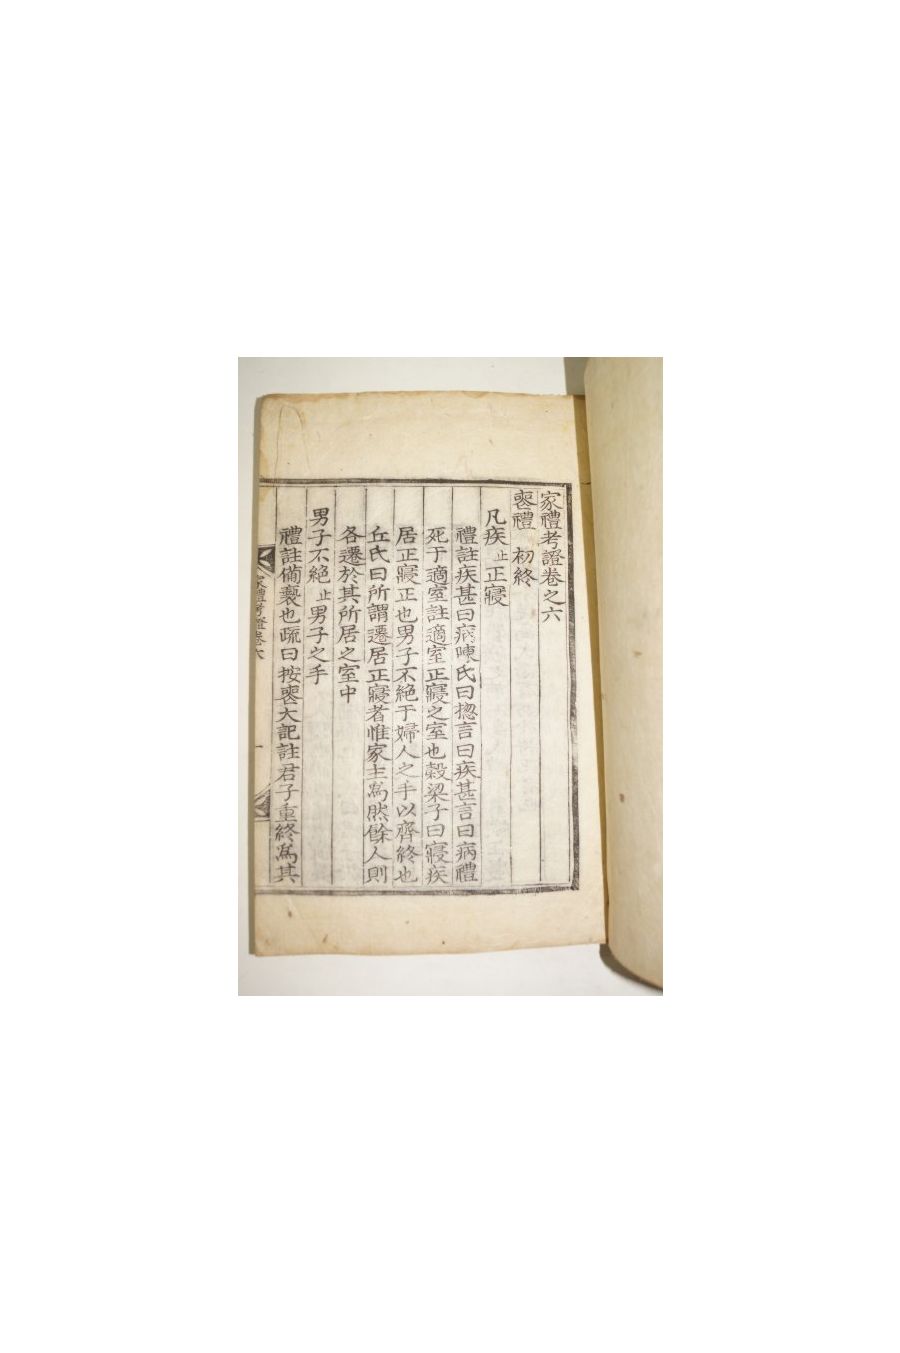 家禮考證卷之六
喪禮 初終
凡疾止正寢
禮註疾甚曰病陳氏曰揔言曰疾甚言曰病禮
死于適室註適室正寢之室也穀梁子曰寢疾
居正寢正也男子不絶于婦人之手以齊終也
丘氏曰所謂遷居正寢者惟家主爲然餘人則
各遷於其所居之室中
男子不絶止男子之手
禮註備褻也疏曰按喪大記註君子重終爲其
家禮考證卷六